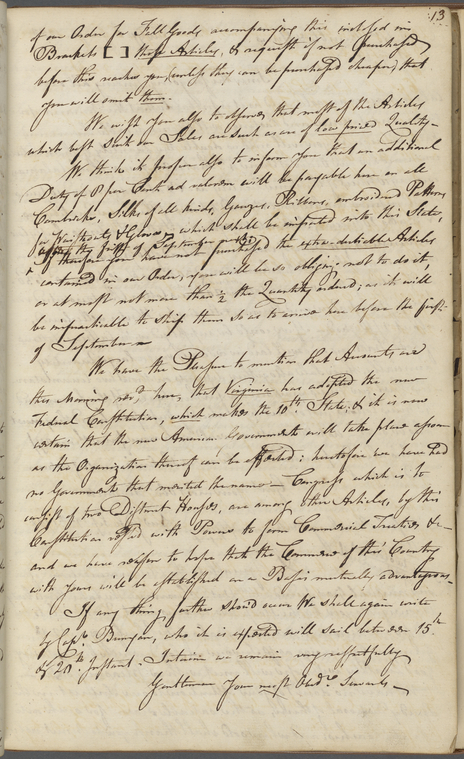 13
of our Order for Fall Goods accompanying this inclosed in
Brackets [ ] those Articles, & request if not purchased
before this reaches you (unless they can be purchased cheap) that
you will omit them.
We wish you also to observe that most of the Articles
which best suit our Sales are such as are of low priced Quality—
We think it proper also to inform you that an additional
Duty of P per Cent ad valorem will be payable here on all
Cambricks, Silks of all kinds, Gauzes, Ribbons, embroidered Patterns
for Waistcoats & Gloves which shall be imported into this State,
after the first of September
therefore if you have not purchased the extra-dutiable Articles
contained in our Order, you will be so obliging not to do it,
or at most not more than ½ the Quantity ordered; as it will
be impracticable to ship them so as to arrive here before the first
of September—
We have the Pleasure to mention that Accounts are
this Morning rec.d here, that Virginia has adopted the new
Federal Constitution, which makes the 10th State, & it is now
certain that the new American Government will take place as soon
as the Organization thereof can be effected: heretofore we have had
no Government that merited the name— Congress which is to
consist of two distinct Houses, are among other Articles, by this
Constitution vested with Power to form Commercial Treaties &c—
and we have reason to hope that the Commerce of this Country
with yours will be established on a Basis mutually advantageous—
If any thing further should occur We shall again write
by Capt. Bunyan, who it is expected will sail between 15th
& 20th Instant. Interim we remain very respectfully
Gentlemen Your most Obed.t Servants—